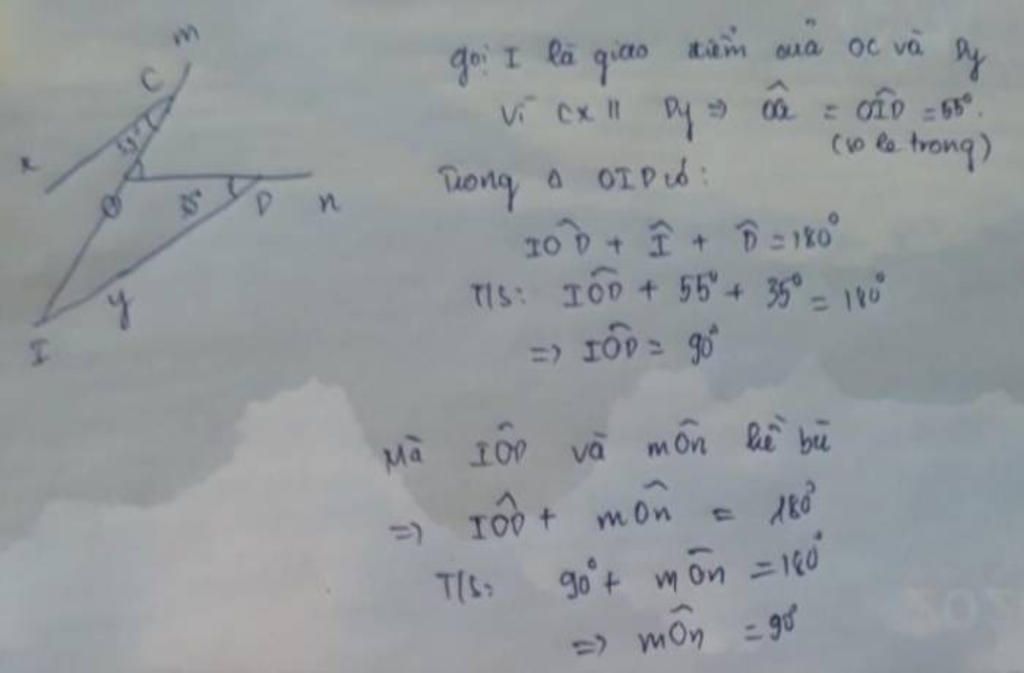 m
C
x
55°
O
35°
D
n
y
I
gọi I là giao điểm của OC và Dy
Vì Cx // Dy => = OID = 55°.
(so le trong)
Trong Δ OID có:
IOD + I + D = 180°
T/s: IOD + 55° + 35° = 180°
=> IOD = 90°
Mà IOD và mOn kề bù
=> IOD + mOn = 180°
T/s: 90° + mOn = 180°
=> mOn = 90°